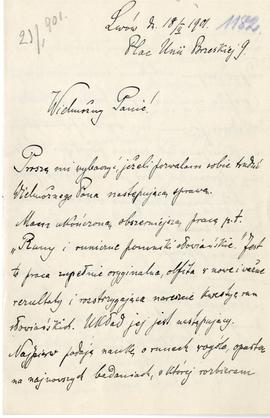 Lwów d. 18/X 1901.
1182.
21/X 901.
Plac Unii Brzeskiej 9.
Wielmożny Panie!
Proszę mi wybaczyć, jeżeli pozwalam sobie trudzić
Wielmożnego Pana następującą sprawą.
Mam ukończoną obszerniejszą pracę p.t.
„Runy i runiczne pomniki słowiańskie." Jest
to praca zupełnie oryginalna, obfita w nowe i ważne
rezultaty i rozstrzygająca nareszcie kwestyę run
słowiańskich. Układ jej jest następujący.
Najpierw podaję naukę o runach wogóle, opartą
na najnowszych badaniach, w której rozbieram